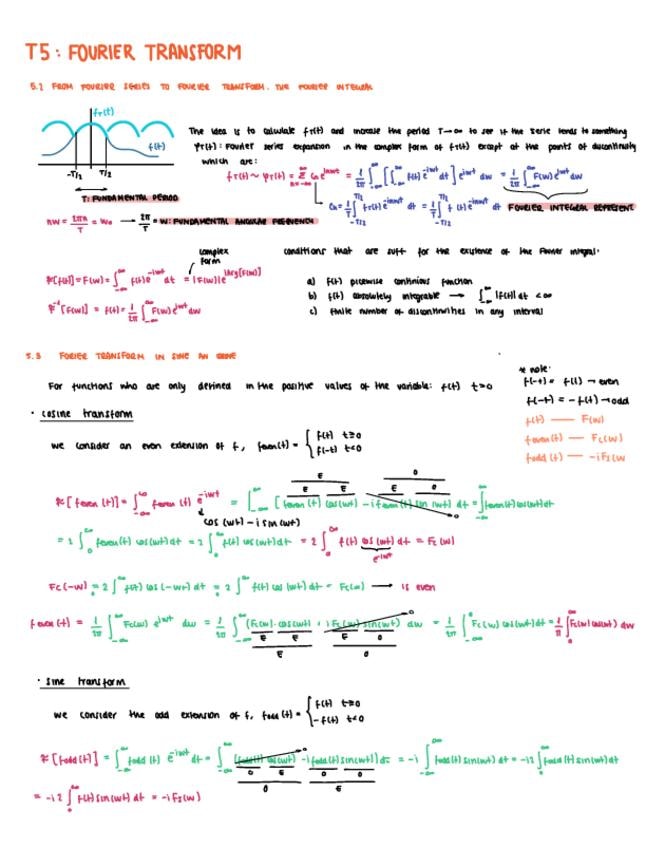 T5: FOURIER TRANSFORM
5.1 FROM FOURIER SERIES TO FOURIER TRANSFORM. THE FOURIER INTEGRAL
f_T(t)
f(t)
-T/2 T/2
T: FUNDAMENTAL PERIOD
The idea is to calculate f_T(t) and increase the period T→∞ to see if the serie tends to something
φ_T(t): Fourier series expansion in the complex form of f_T(t) except at the points of discontinuity
which are:
f_T(t) ~ φ_T(t) = Σ_{n=-∞}^{∞} C_n e^{inwt} = 1/2π ∫_{-∞}^{∞} [∫_{-∞}^{∞} f(t) e^{-iwt} dt] e^{iwt} dw = 1/2π ∫_{-∞}^{∞} F(w) e^{iwt} dw
C_n = 1/T ∫_{-T/2}^{T/2} f_T(t) e^{-inwt} dt = 1/T ∫_{-T/2}^{T/2} f(t) e^{-inwt} dt FOURIER INTEGRAL REPRESENT
nw = 2πn/T = w_n → 2π/T = w: FUNDAMENTAL ANGULAR FREQUENCY
complex
form
conditions that are suff for the existence of the Fourier integral:
F[f(t)] = F(w) = ∫_{-∞}^{∞} f(t) e^{-iwt} dt = |F(w)| e^{iArg[F(w)]}
F^{-1}[F(w)] = f(t) = 1/2π ∫_{-∞}^{∞} F(w) e^{iwt} dw
a) f(t) piecewise continious function
b) f(t) absolutely integrable → ∫_{-∞}^{∞} |f(t)| dt < ∞
c) finite number of discontinuities in any interval
5.3 FORIER TRANSFORM IN SINE AN
For functions who are only defined in the positive values of the variable: f(t) t>0
* note:
f(-t) = f(t) → even
f(-t) = -f(t) → odd
f(t) — F(w)
feven(t) — Fc(w)
fodd(t) — -iFs(w
· cosine transform
we consider an even extension of f, feven(t) = { f(t) t≥0
f(-t) t<0
E O
E E E O
F[feven(t)] = ∫_{-∞}^{∞} feven(t) e^{-iwt} = ∫_{-∞}^{∞} [feven(t) cos(wt) - i feven(t) sin(wt)] dt = ∫_{-∞}^{∞} feven(t) cos(wt) dt
cos(wt) - i sin(wt)
= 2 ∫_0^∞ feven(t) cos(wt) dt = 2 ∫_0^∞ f(t) cos(wt) dt = 2 ∫_0^∞ f(t) cos(wt) dt = Fc(w)
e^{-iwt}
Fc(-w) = 2 ∫_0^∞ f(t) cos(-wt) dt = 2 ∫_0^∞ f(t) cos(wt) dt = Fc(w) → is even
feven(t) = 1/2π ∫_{-∞}^{∞} Fc(w) e^{iwt} dw = 1/2π ∫_{-∞}^{∞} (Fc(w) · cos(wt) + i Fc(w) sin(wt)) dw = 1/2π ∫_{-∞}^{∞} Fc(w) cos(wt) dt = 1/π ∫_0^∞ Fc(w) cos(wt) dw
E E E O
E O
· sine transform
we consider the odd extension of f, fodd(t) = { f(t) t≥0
-f(t) t<0
F[fodd(t)] = ∫_{-∞}^{∞} fodd(t) e^{-iwt} dt = ∫_{-∞}^{∞} [fodd(t) cos(wt) - i fodd(t) sin(wt)] dt = -i ∫_{-∞}^{∞} fodd(t) sin(wt) dt = -i2 ∫_0^∞ fodd(t) sin(wt) dt
O E O O
O E
= -i2 ∫_0^∞ f(t) sin(wt) dt = -iFs(w)